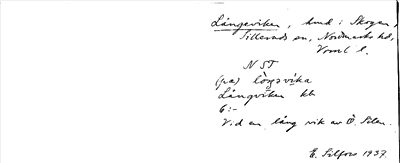 Långeviken, hmd i Skogen,
Silleruds sn, Nordmarks hd,
Vrml l.
NST
(på) lôŋevika
Långviken kb
6:-
Vid en lång vik av Ö. Silen.
E. Silfors 1937.